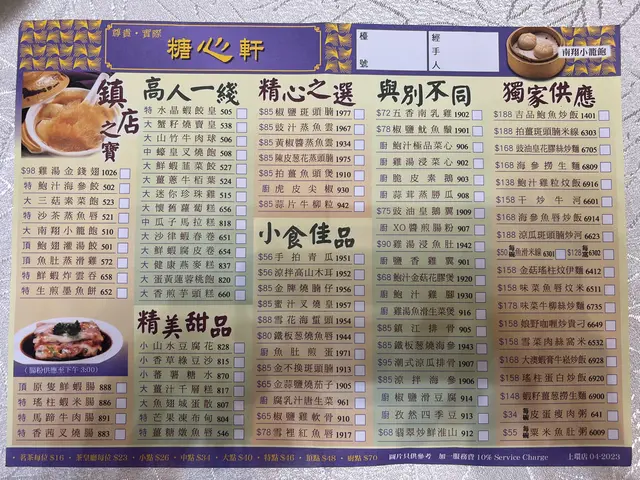 尊貴·實際
糖心軒
檯號
經手人
南翔小籠飽
鎮店之寶
$98 雞湯金錢翅 1026
特 鮑汁海參餃 502
大 三菇素菜飽 523
特 沙茶蒸魚唇 521
大 南翔小籠飽 510
頂 鮑翅灌湯餃 501
頂 魚肚蒸滑雞 572
特 鮮蝦炸雲吞 658
特 生煎墨魚餅 652
(腸粉供應至下午 3:00)
頂 原隻鮮蝦腸 888
特 瑤柱蝦米腸 886
特 馬蹄牛肉腸 891
特 香茜叉燒腸 883
高人一綫
特 水晶蝦餃皇 505
大 蟹籽燒賣皇 538
大 山竹牛肉球 506
中 蠔皇叉燒飽 508
大 鮮蝦韮菜餃 527
大 薑蓉牛栢葉 524
大 迷你珍珠雞 515
大 懷舊蘿蔔糕 656
中 瓜子馬拉糕 818
大 沙律蝦春卷 651
大 鮮蝦腐皮卷 654
大 健康燕麥糕 837
大 蛋黃蓮蓉桃飽 820
大 香煎芋頭糕 660
精美甜品
小 山水豆腐花 828
小 香草綠豆沙 815
小 蕃薯糖水 870
大 薑汁千層糕 817
大 魚翅城蛋散 807
特 芒果凍布甸 804
特 薑糖燉魚唇 546
精心之選
$85 椒鹽斑頭腩 1977
$85 豉汁蒸魚雲 1967
$85 黃椒醬蒸魚雲 1934
$85 陳皮蔥花蒸頭腩 1975
$85 拍薑魚頭煲 1910
廚 虎皮尖椒 930
$85 蒜片牛柳粒 942
小食佳品
$56 手拍青瓜 1951
$56 涼拌高山木耳 1952
$85 金牌燒腩仔 1956
$85 蜜汁叉燒皇 1957
$88 雪花海蜇頭 1954
$80 鐵板蔥燒魚唇 1944
廚 魚肚煎蛋 1971
$85 金不換斑頭腩 1950
$65 金蒜鹽燒茄子 1905
廚 腐乳汁唐生菜 961
$65 椒鹽雞軟骨 910
$78 雪裡紅魚唇 1917
與別不同
$72 五香南乳雞 1902
$78 椒鹽魷魚鬚 1901
廚 鮑汁極品菜心 906
廚 雞湯浸菜心 902
廚 脆皮素鵝 903
廚 蒜茸蒸勝瓜 908
$75 豉油皇鵝翼 1909
廚 XO醬煎腸粉 907
$90 雞湯浸魚肚 1942
廚 鹽香雞翼 901
$68 鮑汁金菇花膠煲 1920
廚 鮑汁雞腳 1930
$68 雞湯魚滑生菜煲 1918
$85 鎮江排骨 905
$85 鐵板蔥燒海參 1943
$95 潮式涼瓜排骨 1907
$85 涼拌海參 1906
廚 椒鹽滑豆腐 914
廚 孜然四季豆 913
$68 翡翠炒鮮淮山 912
獨家供應
$188 吉品鮑魚炒飯 1401
$188 拍薑斑頭腩米線 6303
$168 豉油皇花膠絲炒麵 6605
$168 海參撈生麵 6809
$138 鮑汁雞粒炆飯 6916
$158 干炒牛河 6601
$158 海參魚唇炒飯 6914
$168 涼瓜斑頭腩炒河 6623
$50 每碗 魚滑米線 6301 $128 每窩 6302
$158 金菇瑤柱炆伊麵 6412
$158 味菜魚唇炆米 6511
$178 味菜牛柳絲炒麵 6735
$158 娘野咖喱炒貴刁 6649
$158 雪菜肉絲窩米 6532
$168 大澳蝦膏牛崧炒飯 6928
$158 瑤柱蛋白炒飯 6920
$148 蝦籽薑蔥撈生麵 6908
$34 每碗 皮蛋瘦肉粥 641
$55 每碗 粟米魚肚粥 6009
·茗茶每位 $16 ·茶皇廳每位 $23 ·小點 $26 ·中點 $34 ·大點 $40 ·特點 $46 ·頂點 $48 ·廚點 $70 圖片只供參考 加一服務費 10% Service Charge 上環店 04-2023